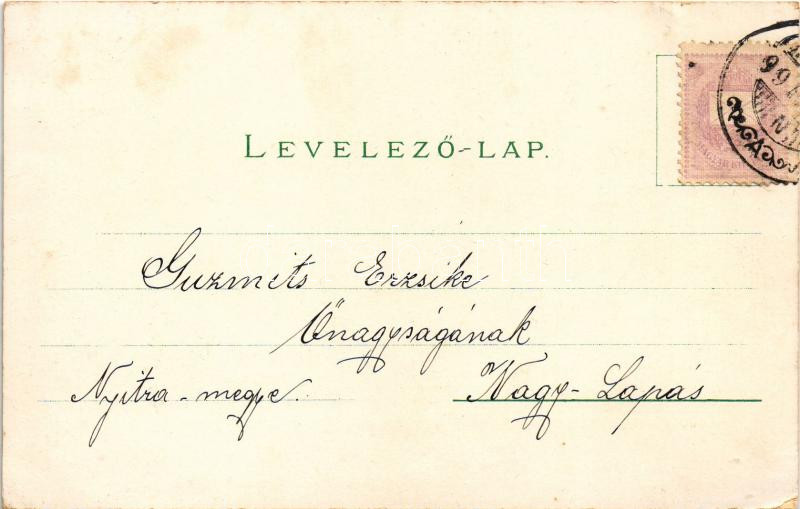 LEVELEZŐ-LAP.
2
99
Guzmits Erzsike
Őnagyságának
Nyitra-megye.
Nagy-Lapás